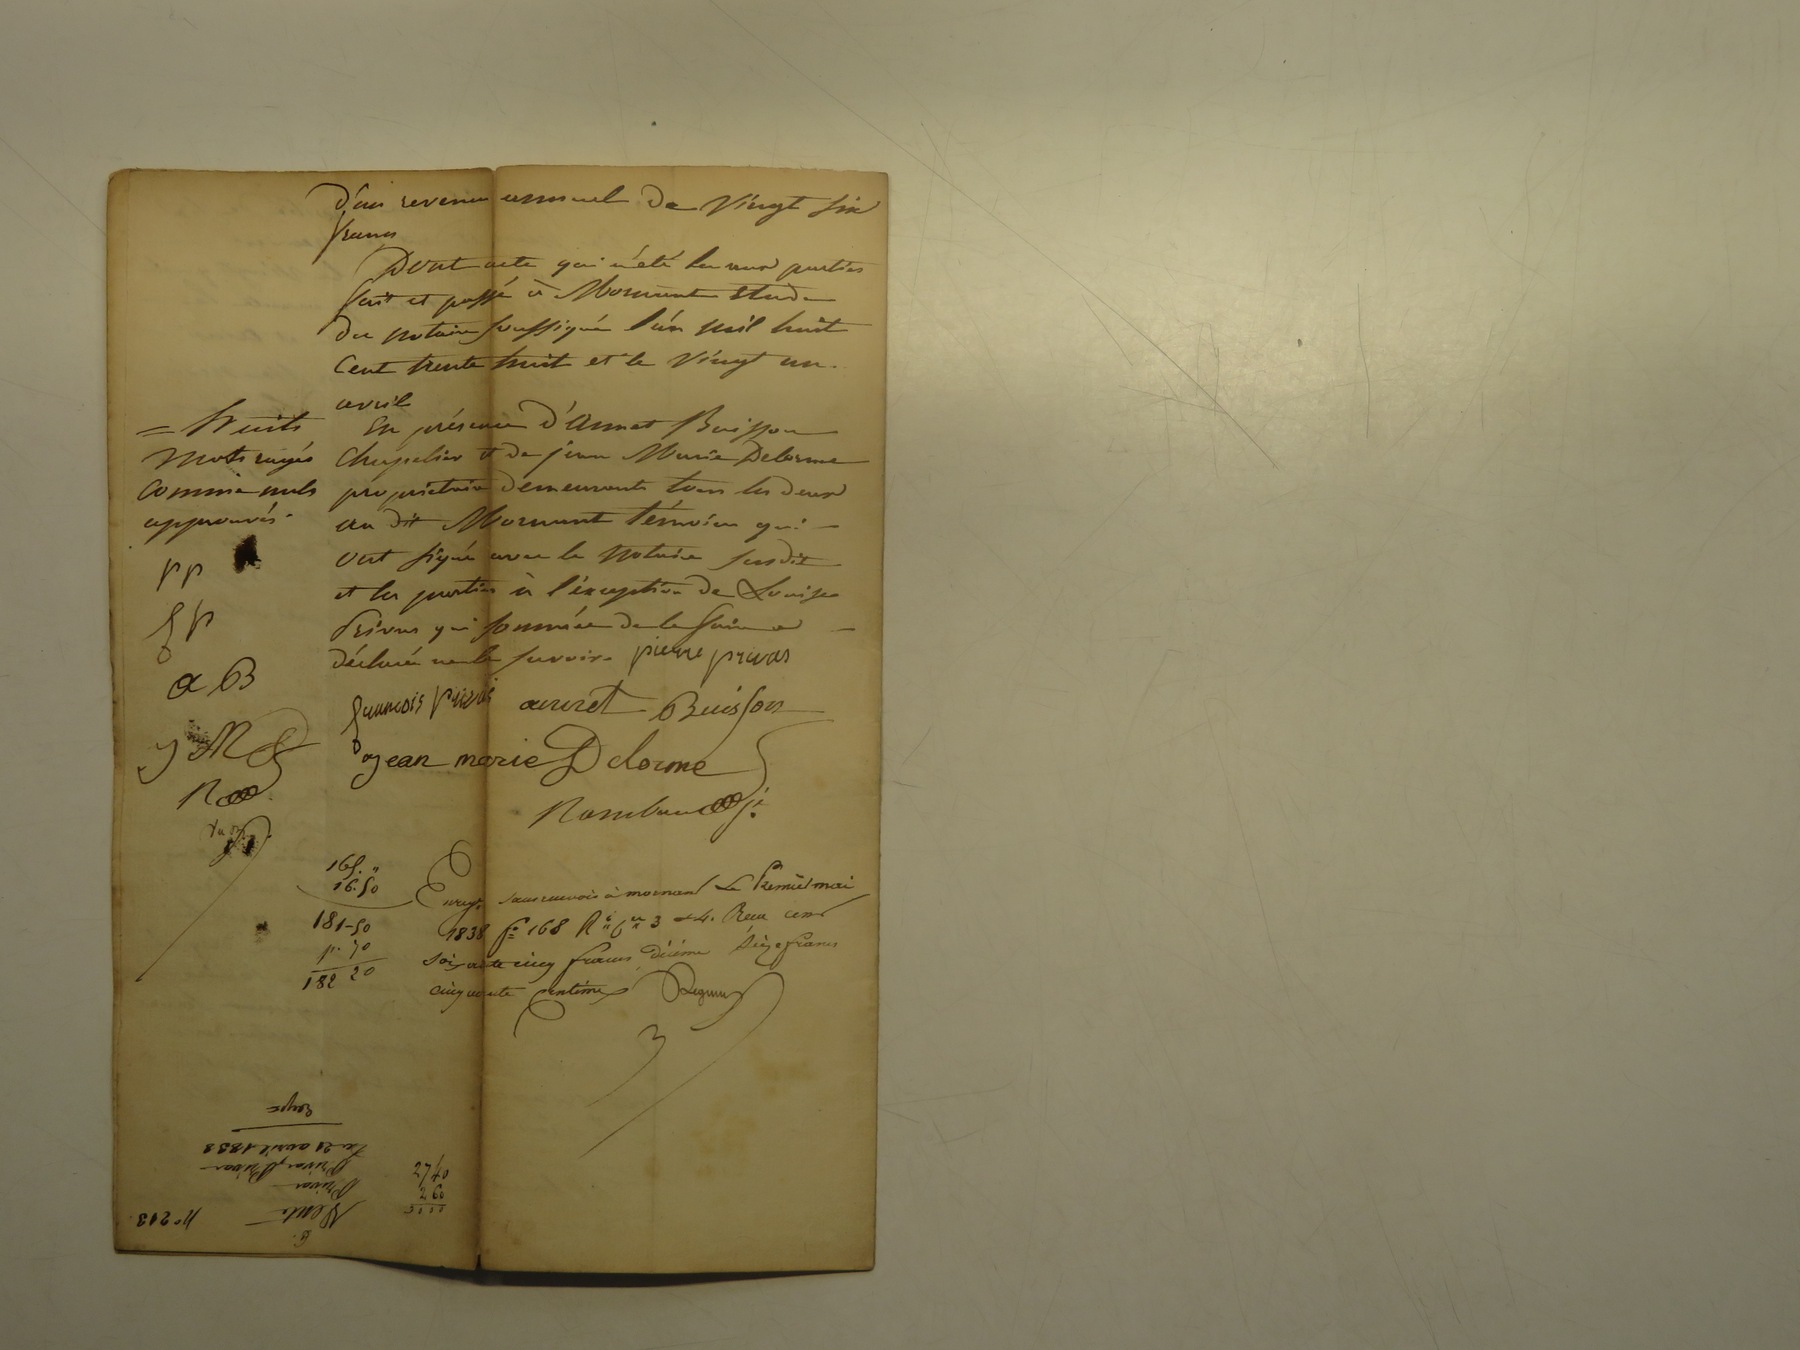 d'un revenu annuel de Vingt six
francs
Dont acte qui a été lu aux parties
fait et passé à Mornant Etude
du notaire soussigné l'an mil huit
Cent trente huit et le Vingt un
avril
En présence d'Annet Buisson
Chapelier et de jean Marie Delorme
propriétaire demeurants tous les deux
au dit Mornant témoins qui
ont signé avec le notaire susdit
et les parties à l'éxception de Louise
Privas qui sommée de le faire a
déclaré ne le savoir. pierre privas
françois privas annet Buisson
jean marie Delorme
= huits
mots rayés
comme nuls
approuvés.
pp
fp
a B
j M D
165. "
16.50
181-50
p. 70
182 20
Enregt. sans renvois à mornant Le Premier mai
1838 fo 168 Ro Cn 3 et 4. Reçu cent
soixante cinq francs, décime Seize francs
cinquante centimes
No 213
Vente
Privas
Privas, Privas
Le 21 avril 1838
2740